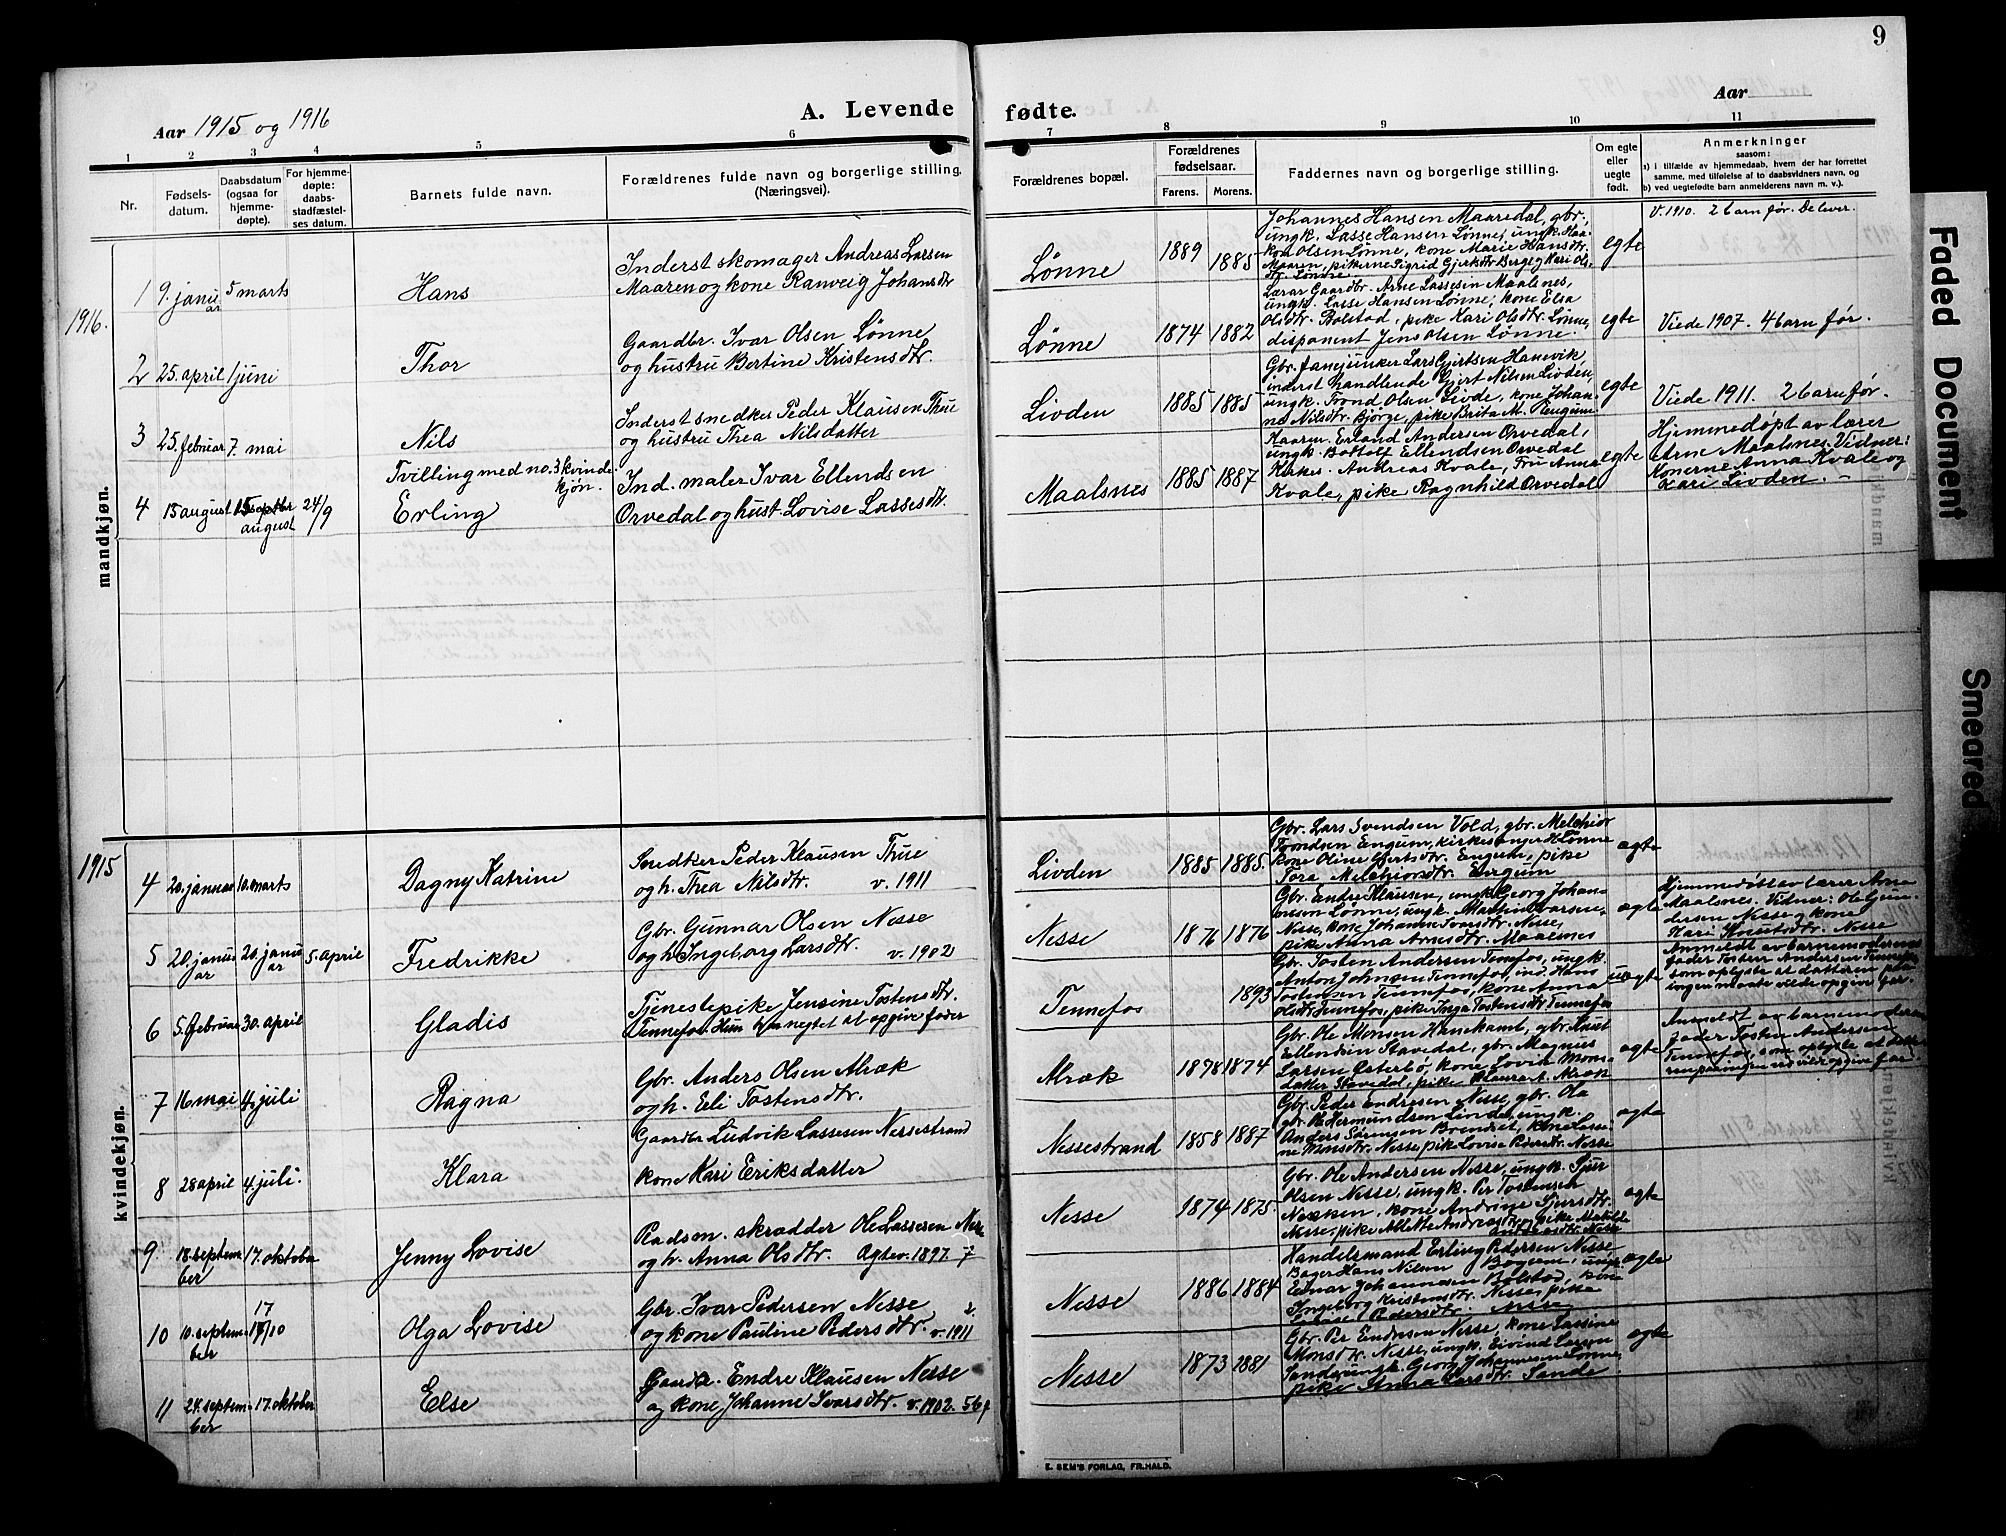 9
Aar 1915 og 1916
A. Levende
fødte.
Aar
1 2 3 4 5 6 7 8 9 10 11
Nr.
Fødsels-
datum.
Daabsdatum
(ogsaa for
hjemme-
døpte).
For hjemme-
døpte:
daabs-
stadfæstel-
ses datum.
Barnets fulde navn.
Forældrenes fulde navn og borgerlige stilling.
(Næringsvei).
Forældrenes bopæl.
Forældrenes
fødselsaar.
Farens. Morens.
Faddernes navn og borgerlige stilling.
Om egte
eller
uegte
født.
Anmerkninger
saasom:
a) i tilfælde av hjemmedaab, hvem der har forrettet
samme, med tilføielse af to daabsvidners navn, og
b) ved uegtefødte barn anmelderens navn m. v.).
1916.
mandkjøn.
1 9. janu
ar
5 marts
Hans
Inderst skomager Andreas Larsen
Maaren og kone Ranveig Johansdtr
Lønne
1889 1885
Johannes Hansen Maaredal, gbr.,
ungk. Lasse Hansen Lønne, ungk. Haa-
kon Olsen Lønne, kone Marie Hansdtr.
Maaren, pikerne Sigrid Gjertsdtr Berge og Kari Ols-
dtr. Lønne
egte
V. 1910. 2 barn før. De lever.
2 25. april 1 juni
Thor
Gaardbr. Ivar Olsen Lønne
og hustru Bertine Kristensdtr.
Lønne
1874 1882
Lærar Gaardbr. Arne Lassesen Maalsnes,
ungk. Lasse Hansen Lønne, kone Elsa
Olsdtr. Bolstad, pike Kari Olsdtr. Lønne,
disponent Jens Olsen Lønne.
egte
Viede 1907. 4 barn før.
3 25. februar 7. mai
Nils
Inderst snedker Peder Klausen Thue
og hustru Thea Nilsdatter
Livden
1885 1885
Gbr. fanejunker Lars Gjertsen Hanevik,
inderst handlende Gjert Nilsen Livden,
ungk. Trond Olsen Livde, kone Johan-
ne Nilsdtr. Bjørge, pike Brita M. Engum
egte
Viede 1911. 2 barn før.
Tvilling med no. 3 kvinde-
kjøn.
4 15 august
august
24/9
Erling
Ind. maler Ivar Ellendsen
Orvedal og hust. Lovise Lassesdtr.
Maalsnes
1885 1887
Haaren. Erland Andersen Orvedal,
ungk. Botholf Ellendsen Orvedal
Kirkes. Andreas Kvale, Fru Anna
Kvale, pike Ragnhild Orvedal
egte
Hjemmedøpt av lærer
Arne Maalsnes. Vidner:
Konerne Anna Kvale og
Kari Livden. -
1915
kvindekjøn.
4 20. januar 10. marts
Dagny Katrine
Snedker Peder Klausen Thue
og h. Thea Nilsdtr. v. 1911
Livden
1885 1885.
Gbr. Lars Svendsen Vold, gbr. Melchior
Trondsen Engum, kirkesanger H Lønne
kone Oline Gjertsdtr. Engum, pike
Tora Melchiorsdtr. Engum
egte
5 20. janu
ar
20. janu
ar
5. april
Fredrikke
Gbr. Gunnar Olsen Nesse
og h Ingeborg Larsdtr. v. 1902
Nesse
1876 1876
Gbr. Endre Klausen, ungk. Georg Johan-
nesen Lønne, ungk. Martin Ivarsen,
Nesse, kone Johanne Ivarsdtr. Nesse,
pike Anna Arnesdtr. Maalsnes
egte
Hjemmedøbt av lærer Arne
Maalsnes. Vidner: Ole Gun-
dersen Nesse og kone
Kari Knutsdtr. Nesse
6 5. februar 30. april
Gladis
Tjenestepike Jensine Tostensdtr.
Tennefos. Hun har negtet at opgive fader
Tennefos
1893
Gbr. Tosten Andersen Tennefos, ungk.
Anton Johnsen Tennefos, ind. Hans
Tostensen Tennefos, kone Anna
Olsdtr Tennefos, pike Inga Tostensdtr. Tennefos
uegte
Anmeldt av barnemoderens
fader Tosten Andersen Tennefos
som oplyste at datteren paa
ingen maate vilde opgive far.
7 16 mai 4. juli
Ragna
Gbr. Anders Olsen Alræk
og h. Eli Tostensdtr.
Alræk
1878 1874
Gbr. Ole Monsen Hanekamb, gbr. Knut
Ellendsen Stavedal, gbr. Magnus
Larsen Østerbø, kone Lovise Mons-
datter Stavedal, pike Laura A. Alræk
egte
Anmeldt av barnemoderens
fader Tosten Andersen
Tennefos, som oplyste at datte-
8 28 april 4 juli.
Klara
Gaardbr Ludvik Lassesen Nessestrand
kone Kari Eriksdatter
Nessestrand
1858 1887
Gbr. Peder Endresen Nesse, gbr. Ola
gbr. Pedermundsen Linde, ungk.
Anders Sørensen Brendset, kone Lassi-
ne Monsdtr. Nesse, pike Lovise Pedersdtr. Nesse
egte
9 18. septem
ber
17. oktober
Jenny Lovise
Pladsm. skrædder Ole Lassesen Nesse
og h. Anna Olsdtr. Egtev. 1897. 7
Nesse
1874 1875.
Gbr. Ole Andersen Nesse, ungk. Sjur
Olsen Nesse, ungk. Per Tostensen
Nessen, kone Andrine Sjursdtr.
Nesse, pike Alette Andreasdtr og pike Matilde
Andreasdtr. Nesse
egte
10 10. septem
ber
17
17/10
Olga Lovise
Gbr. Ivar Pedersen Nesse
og kone Pauline Pedersdtr. v. 1911
Nesse
1886 1884
Handelsmand Erling Pedersen Nesse
Bager Hans Nilsen Bogum, ungk.
Einar Johannesen Bolstad, kone
Ingeborg Kristensdtr. Nesse, pike
Pedersdtr. Nesse
egte
11 24. septem
ber
17. oktober
Else
Gaardbr. Endre Klausen Nesse
og kone Johanne Ivarsdtr. v. 1902. 5 6 f
Nesse
1873 1881
Gbr. Per Endresen Nesse, kone Lassine
Monsdtr. Nesse, ungk. Eivind Larsen
Sande, ungk. Georg Johannesen Lønne,
pike Anna Larsdtr. Sande
egte
E. SEM'S FORLAG, FR.HALD.
Faded Document
Smeared